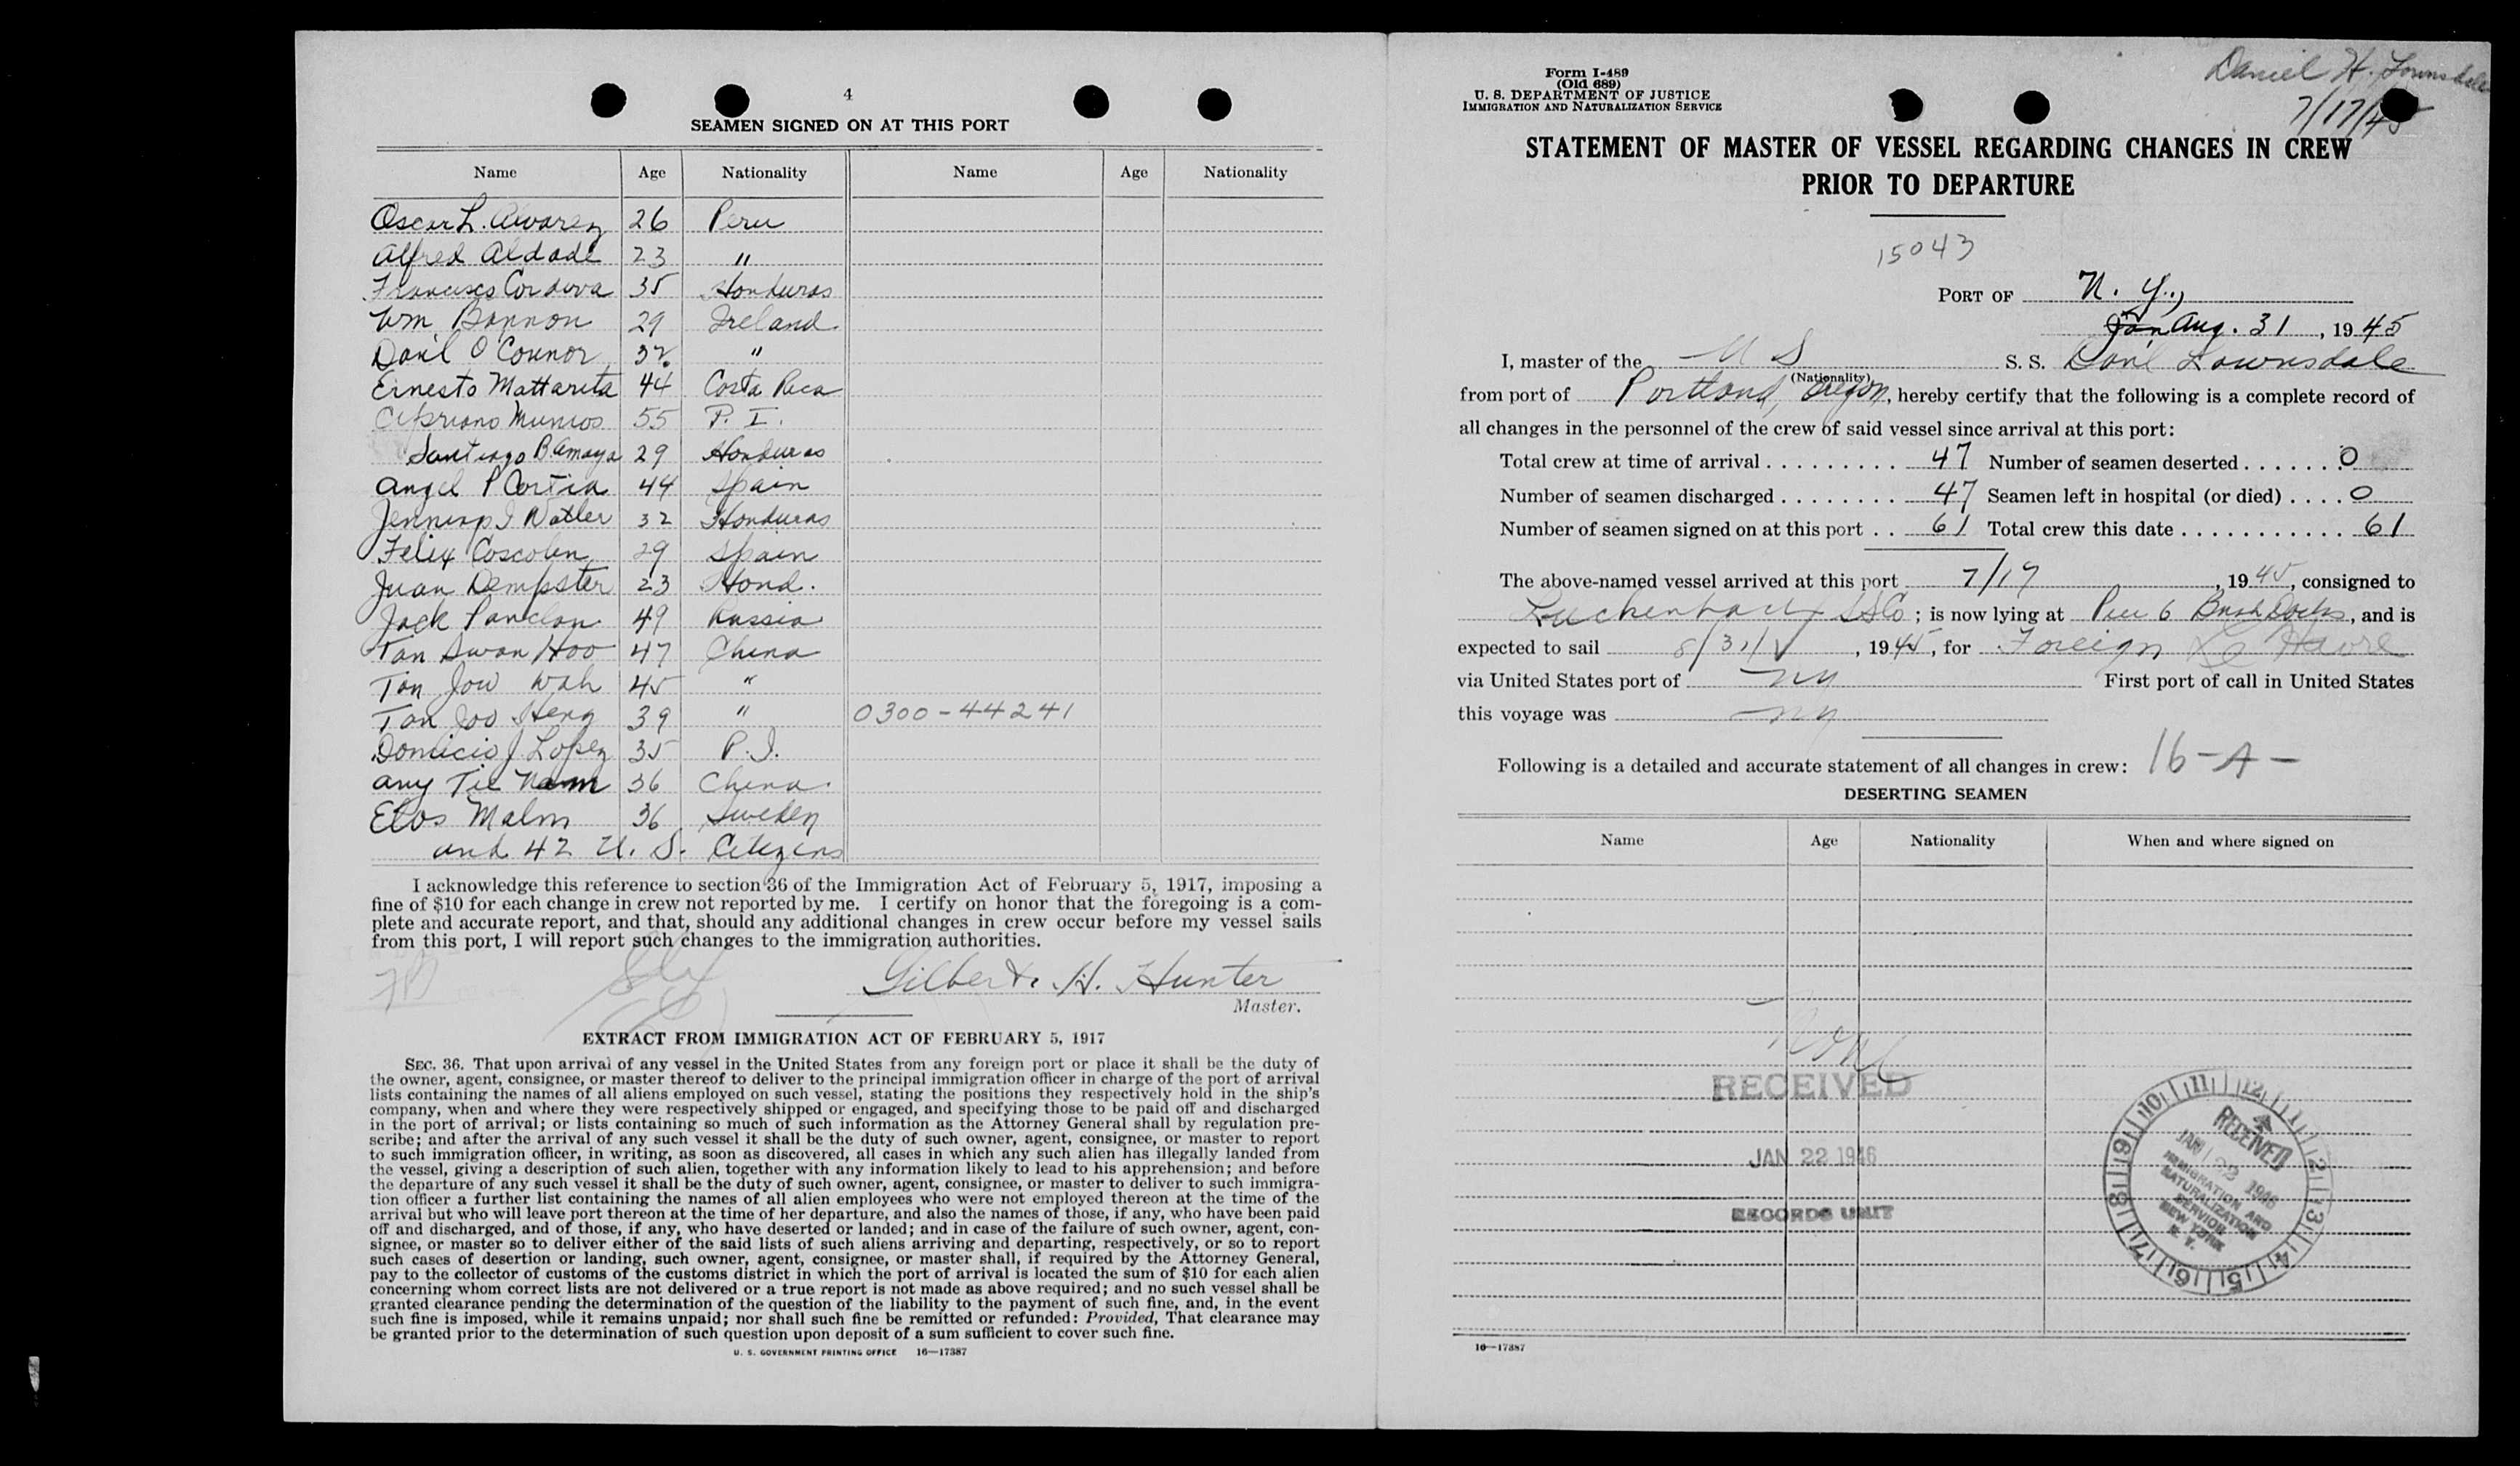 4
SEAMEN SIGNED ON AT THIS PORT
Name Age Nationality Name Age Nationality
Oscar L. Alvarez 26 Peru
Alfred Aldade 23 "
Francisco Cordova 35 Honduras
Wm. Bannon 29 Ireland
Dan'l O'Connor 32 "
Ernesto Mattarita 44 Costa Rica
Cipriano Munios 55 P. I.
Santiago B. Amaya 29 Honduras
Angel P 44 Spain
32 Honduras
Felix 29 Spain
Juan Dempster 23 Hond.
Jack 49 Russia
Tan Swan Hoo 47 China
Tan Jow Wah 45 "
Tan Joo Heng 39 " 0300-44241
Domicio J. Lopez 35 P. I.
Any Tie Nam 36 China.
Elos Malm 36 Sweden
and 42 U. S. Citizens
I acknowledge this reference to section 36 of the Immigration Act of February 5, 1917, imposing a
fine of $10 for each change in crew not reported by me. I certify on honor that the foregoing is a com-
plete and accurate report, and that, should any additional changes in crew occur before my vessel sails
from this port, I will report such changes to the immigration authorities.
Gilbert H. Hunter
Master.
EXTRACT FROM IMMIGRATION ACT OF FEBRUARY 5, 1917
SEC. 36. That upon arrival of any vessel in the United States from any foreign port or place it shall be the duty of
the owner, agent, consignee, or master thereof to deliver to the principal immigration officer in charge of the port of arrival
lists containing the names of all aliens employed on such vessel, stating the positions they respectively hold in the ship's
company, when and where they were respectively shipped or engaged, and specifying those to be paid off and discharged
in the port of arrival; or lists containing so much of such information as the Attorney General shall by regulation pre-
scribe; and after the arrival of any such vessel it shall be the duty of such owner, agent, consignee, or master to report
to such immigration officer, in writing, as soon as discovered, all cases in which any such alien has illegally landed from
the vessel, giving a description of such alien, together with any information likely to lead to his apprehension; and before
the departure of any such vessel it shall be the duty of such owner, agent, consignee, or master to deliver to such immigra-
tion officer a further list containing the names of all alien employees who were not employed thereon at the time of the
arrival but who will leave port thereon at the time of her departure, and also the names of those, if any, who have been paid
off and discharged, and of those, if any, who have deserted or landed; and in case of the failure of such owner, agent, con-
signee, or master so to deliver either of the said lists of such aliens arriving and departing, respectively, or so to report
such cases of desertion or landing, such owner, agent, consignee, or master shall, if required by the Attorney General,
pay to the collector of customs of the customs district in which the port of arrival is located the sum of $10 for each alien
concerning whom correct lists are not delivered or a true report is not made as above required; and no such vessel shall be
granted clearance pending the determination of the question of the liability to the payment of such fine, and, in the event
such fine is imposed, while it remains unpaid; nor shall such fine be remitted or refunded: Provided, That clearance may
be granted prior to the determination of such question upon deposit of a sum sufficient to cover such fine.
U. S. GOVERNMENT PRINTING OFFICE 16—17387
Form I-489
(Old 689)
U. S. DEPARTMENT OF JUSTICE
IMMIGRATION AND NATURALIZATION SERVICE
Daniel H. Lownsdale
7/17/45
STATEMENT OF MASTER OF VESSEL REGARDING CHANGES IN CREW
PRIOR TO DEPARTURE
15043
PORT OF N. Y.,
Jan Aug. 31, 1945
I, master of the U S S. S. Dan'l Lownsdale
(Nationality)
from port of Portland, Oregon, hereby certify that the following is a complete record of
all changes in the personnel of the crew of said vessel since arrival at this port:
Total crew at time of arrival . . . . . . . . . . 47 Number of seamen deserted . . . . . . . 0
Number of seamen discharged . . . . . . . . 47 Seamen left in hospital (or died) . . . . 0
Number of seamen signed on at this port . . 61 Total crew this date . . . . . . . . . . . 61
The above-named vessel arrived at this port 7/17, 1945, consigned to
Luckenbach SSCo; is now lying at Pier 6 Bush Docks, and is
expected to sail 8/31/, 1945, for Foreign Le Havre
via United States port of NY First port of call in United States
this voyage was NY
Following is a detailed and accurate statement of all changes in crew: 16-A-
DESERTING SEAMEN
Name Age Nationality When and where signed on
None
RECEIVED
JAN 22 1946
RECORDS UNIT
11 12 1 2 3 4 5 6 7 8 9 10
RECEIVED
JAN 22 1946
IMMIGRATION AND
NATURALIZATION
SERVICE
NEW YORK
N. Y.
16—17387